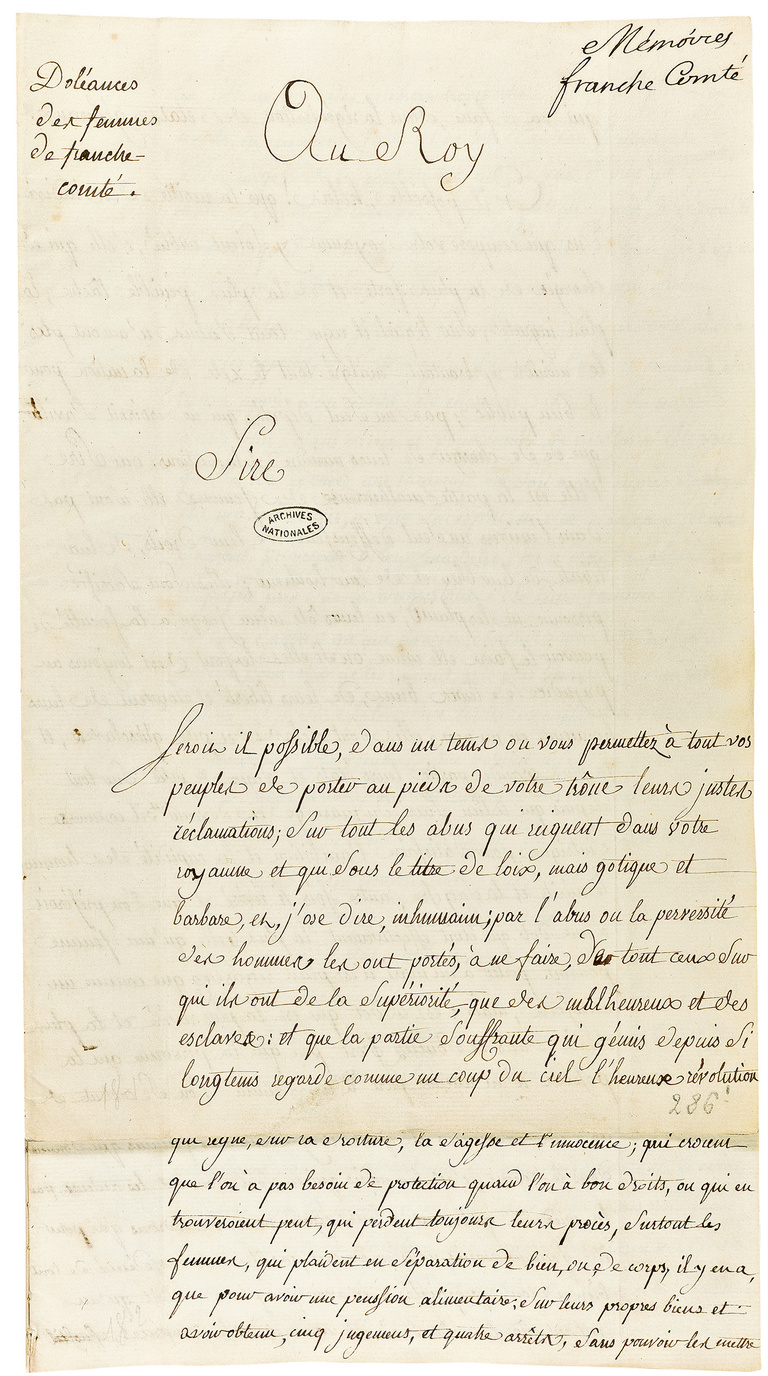 Mémoires
franche Comté
Doléances
des femmes
de franche-
comté.
Au Roy
Sire
ARCHIVES
NATIONALES
Seroin il possible, dans un tems ou vous permettez à tout vos
peuples de porter au pieds de votre trône leurs justes
réclamations; sur tout les abus qui reignent dans votre
royaume et qui sous le titre de loix, mais gotique et
barbare, et, j'ose dire, inhumain; par l'abus ou la perversité
des hommes les ont portés, à ne faire, de tout ceux sur
qui ils ont de la supériorité, que des malheureux et des
esclaves: et que la partie souffrante qui gémis depuis si
longtems regarde comme un coup du ciel l'heureuse révolution
286
qui regne, sur la droiture, la sagesse et l'innocence; qui croient
que l'on à pas besoin de protection quand l'on à bon droits, ou qui en
trouveroient peut, qui perdent toujours leurs procès, surtout les
femmes, qui plaident en séparation de bien, ou de corps, il y en a,
que pour avoir une penssion alimentaire; sur leurs propres biens et
avoir obtenu, cinq jugement, et quatre arrêts, sans pouvoir les mettre